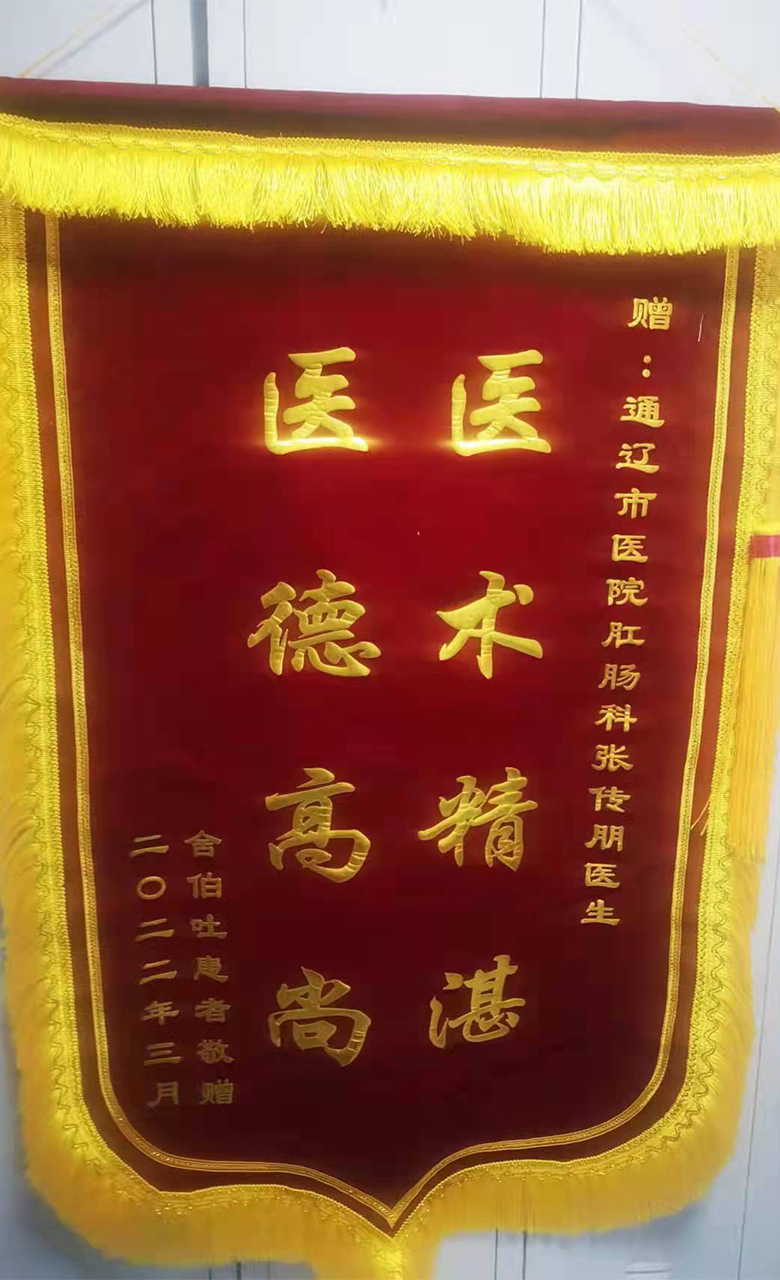 赠：通辽市医院肛肠科张传朋医生
医术精湛
医德高尚
舍伯吐患者敬赠
二〇二二年三月